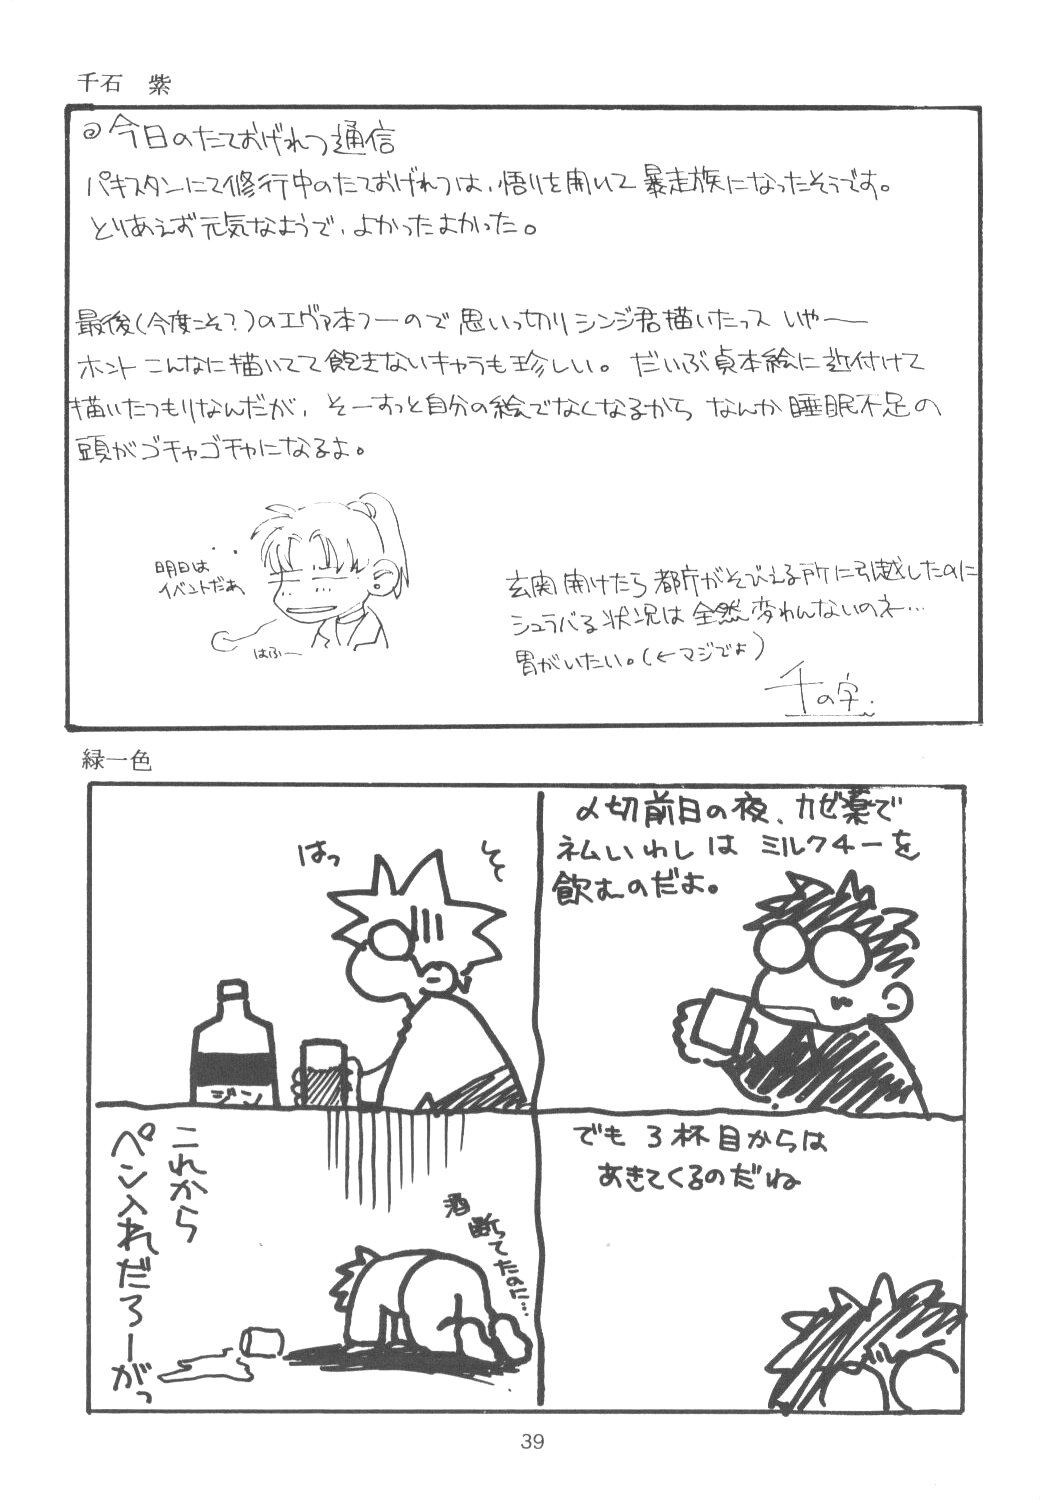 千石　紫
今日のたておげれつ通信
パキスタンにて修行中のたておげれつは、悟りを開いて暴走族になったそうです。
とりあえず元気なようで、よかったよかった。
最後(今度こそ?)のエヴァ本つーので思いっ切りシンジ君描いたっス いやー
ホント こんなに描いてて飽きないキャラも珍しい。 だいぶ貞本絵に近付けて
描いたつもりなんだが、そーすっと自分の絵でなくなるから なんか睡眠不足の
頭がゴチャゴチャになるよ。
明日は
イベントだぁ
はふー
玄関開けたら都庁がそびえる所に引越したのに
シュラバる状況は全然変わんないのネー…
胃がいたい。(←マジでよ)
千の字.
緑一色
〆切前日の夜、カゼ薬で
ネムいわしは ミルクチーを
飲むのだよ。
でも 3杯目からは
あきてくるのだね
はっ
そ
ジン
これから
ペン入れだろーがっ
酒
断ってたのに…
39